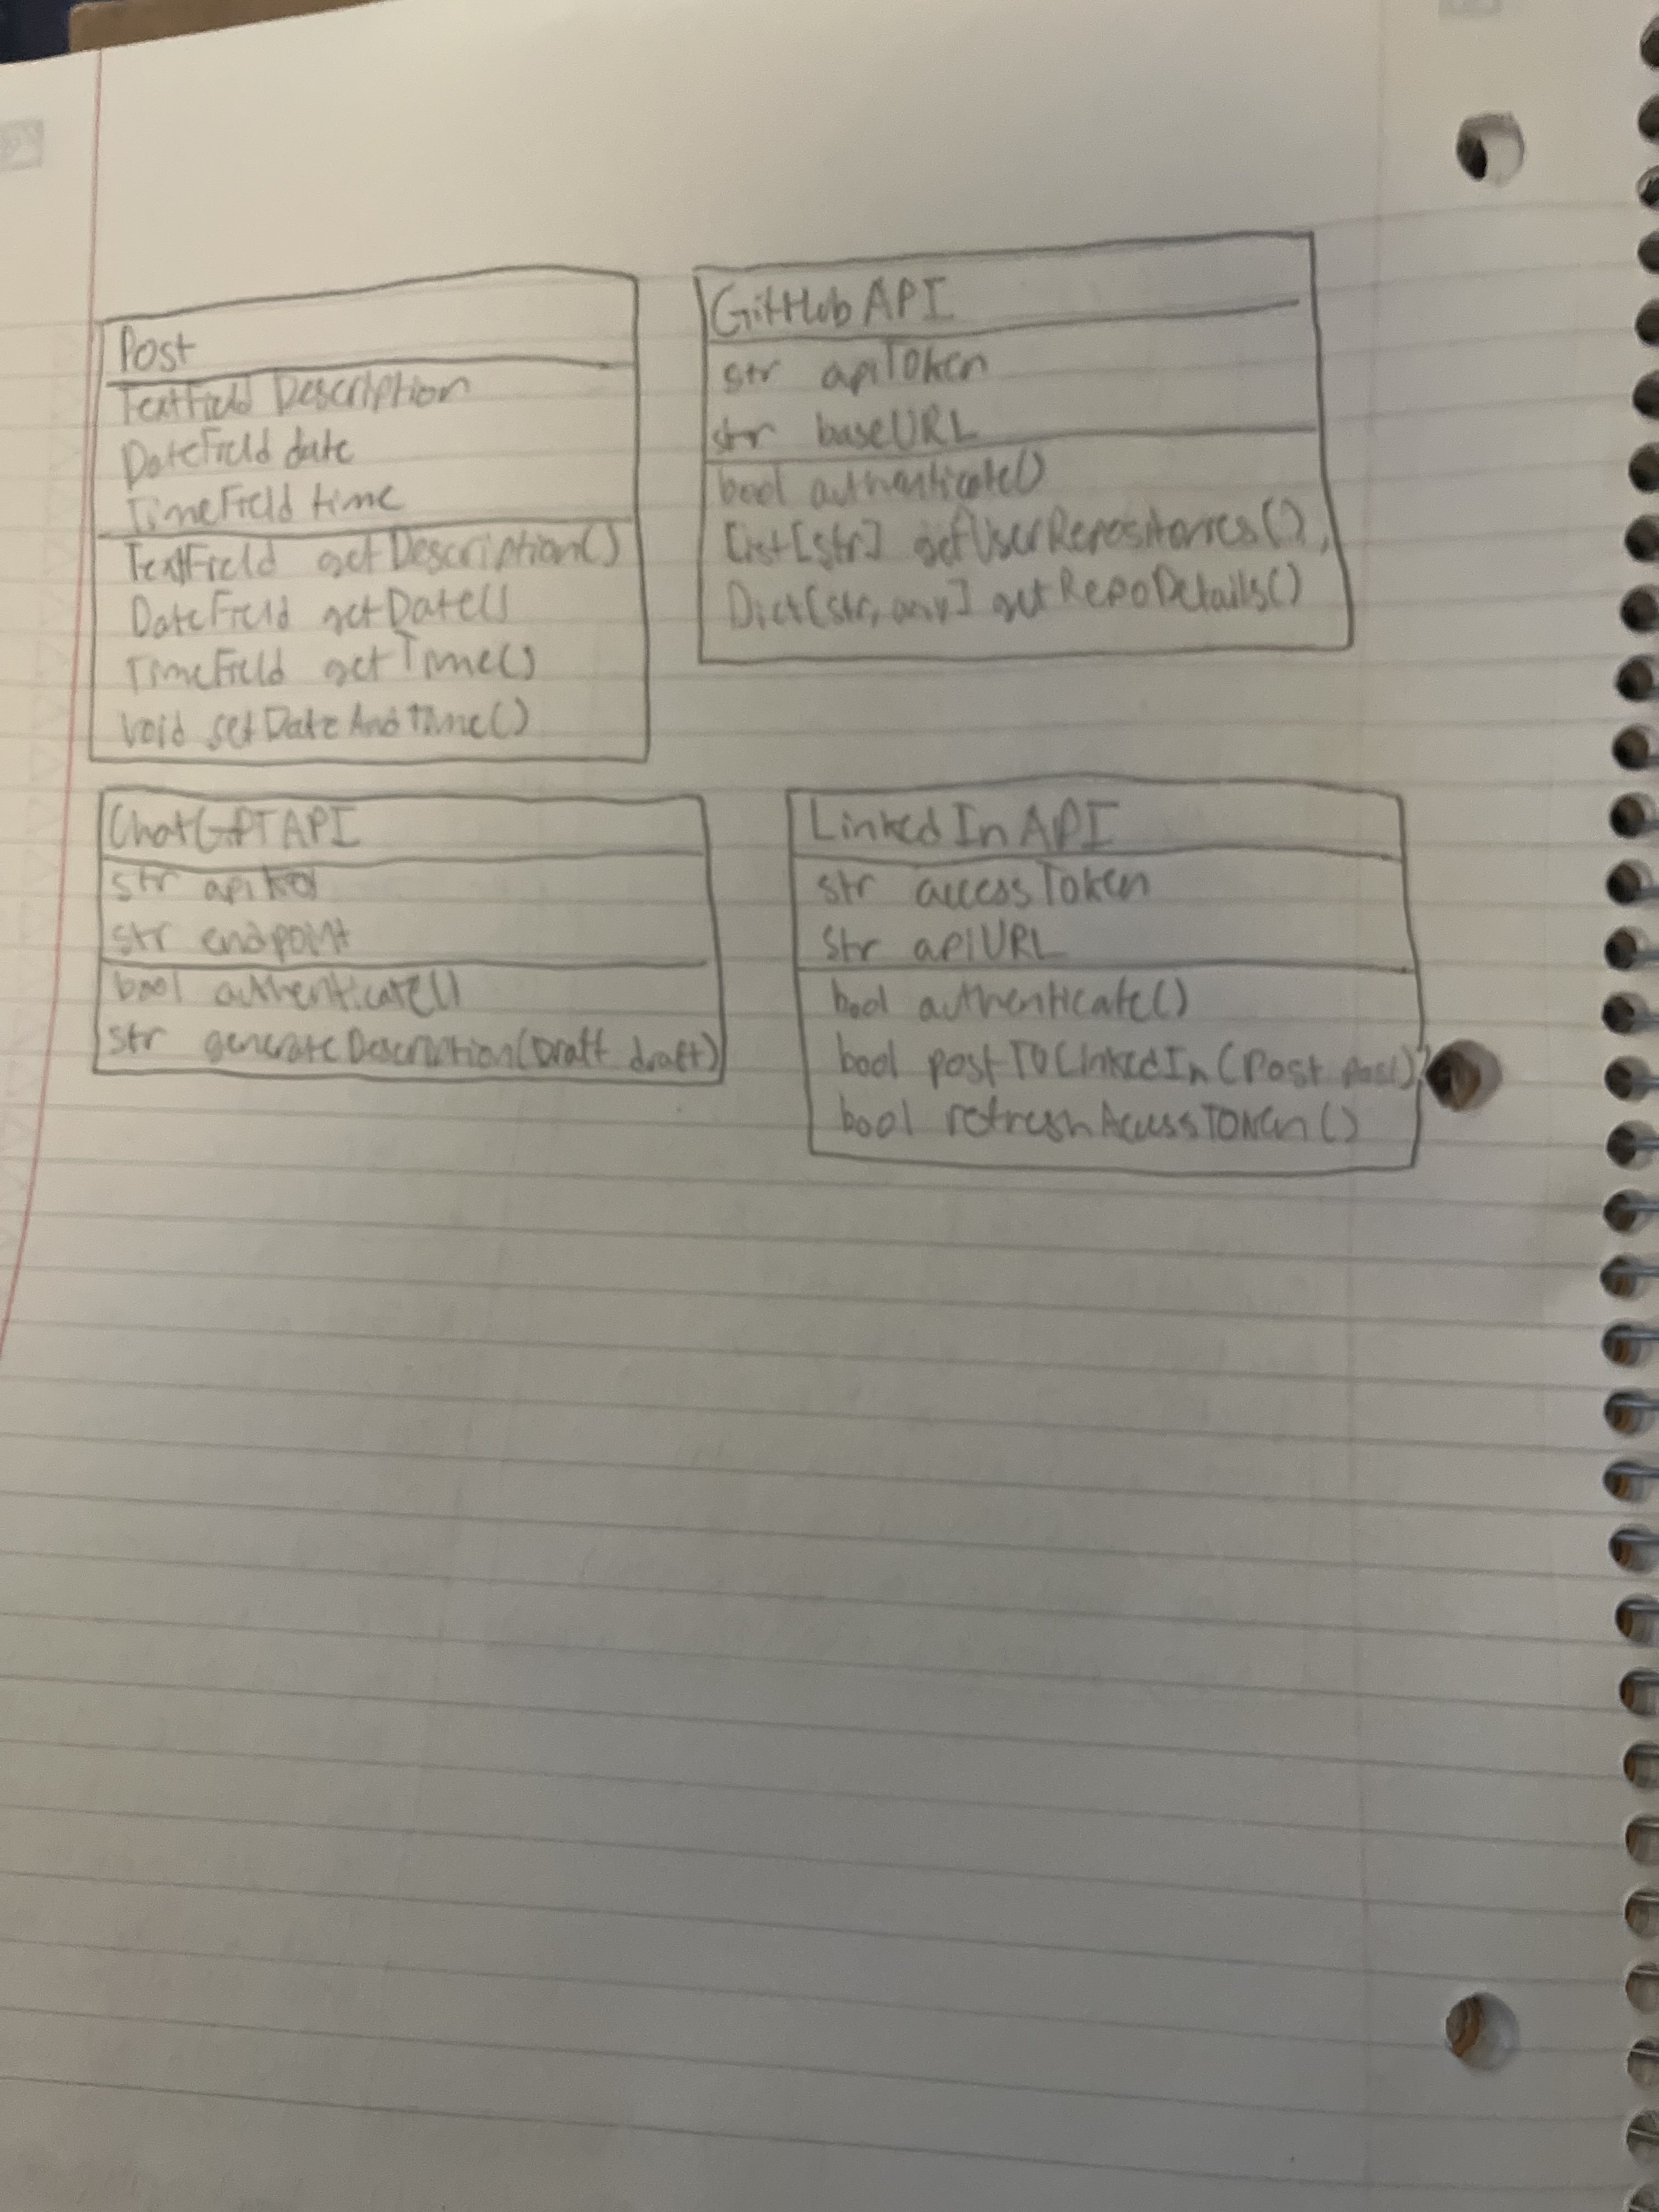 Post
TextField Description
DateField date
TimeField time
TextField getDescription()
DateField getDate()
TimeField getTime()
void setDateAndTime()
GitHub API
str apiToken
str baseURL
bool authenticate()
List[str] getUserRepositories(),
Dict[str, any] getRepoDetails()
ChatGPT API
str apiKey
str endpoint
bool authenticate()
str generateDescription(Draft draft)
LinkedIn API
str accessToken
str apiURL
bool authenticate()
bool postToLinkedIn(Post post)
bool refreshAccessToken()